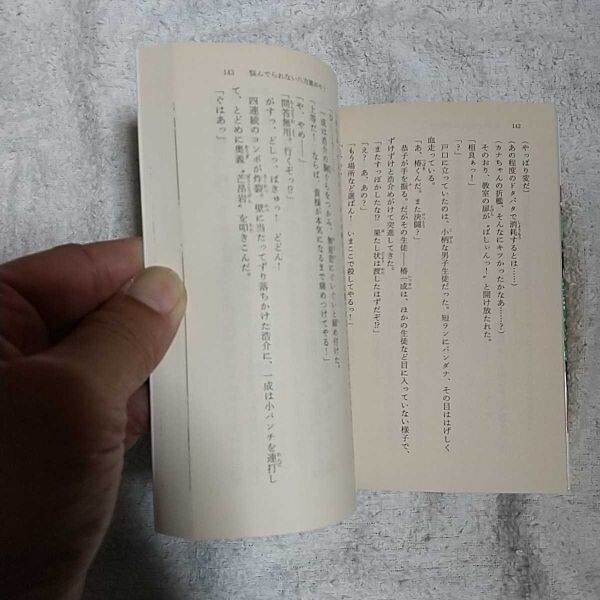 142
(やっぱり変だ)
(あの程度のドタバタで消耗するとは……)
(カナちゃんの折檻、そんなにキツかったかなあ……?)
そのおり、教室の扉が〝ばしぃんっ!〟と開け放たれた。
「相良ぁっ!」
「?」
戸口に立っていたのは、小柄な男子生徒だった。短ランにバンダナ、その目ははげしく
血走っている。
「あ、椿くんだ。また決闘?」
恭子が手を振る。だがその生徒――椿一成は、ほかの生徒など目に入っていない様子で、
ずけずけと浩介めがけて突進してきた。
「またすっぽかしたな!? 果たし状は渡したはずだぞ!?」
「え? あ、あの?」
「もう場所など選ばん! いまここで殺してやるっ!」
143 悩んでられない八方塞がり?
一成は浩介の胸ぐらをつかみ、無慈悲にぐいぐいと締め付けた。
「上等だ! ならば、貴様が本気になるまで痛めつけてやる!」
「や、やめ――」
「問答無用。行くぞっ!?」
がすっ、どしっ、ばきゅっ! どどん!
四連続のコンボが炸裂。壁に当たってずり落ちかけた浩介に、一成は小パンチを連打し
て、とどめに奥義〝芒昂岩〟を叩きこんだ。
「ぐはあっ」